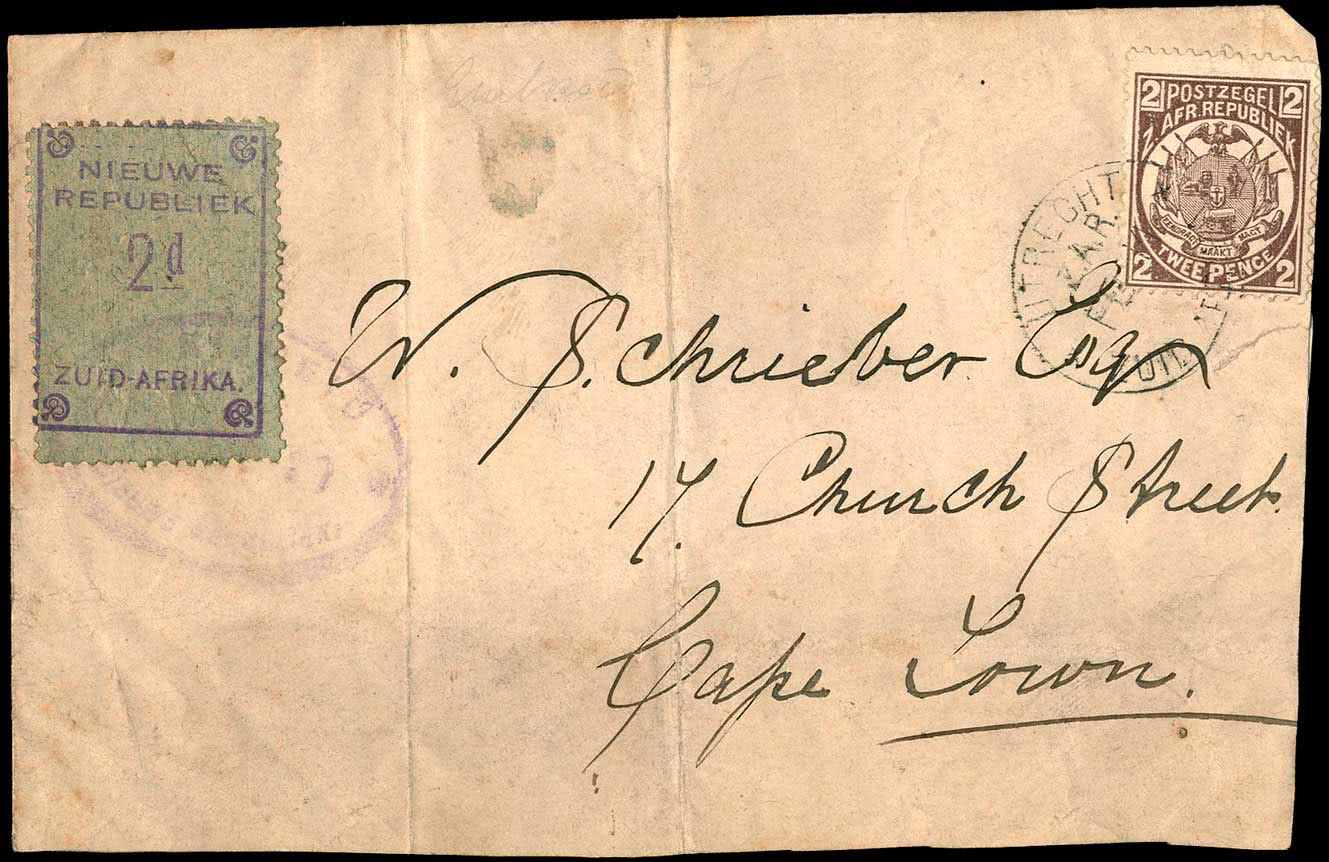 NIEUWE
REPUBLIEK
2d
ZUID-AFRIKA.
2 POSTZEGEL 2
AFR. REPUBLIEK
EENDRAGT MAAKT MAGT
2 TWEE PENCE 2
UTRECHT
Z.A.R.
W. Schrieber Esqr
17. Church Street.
Cape Town.